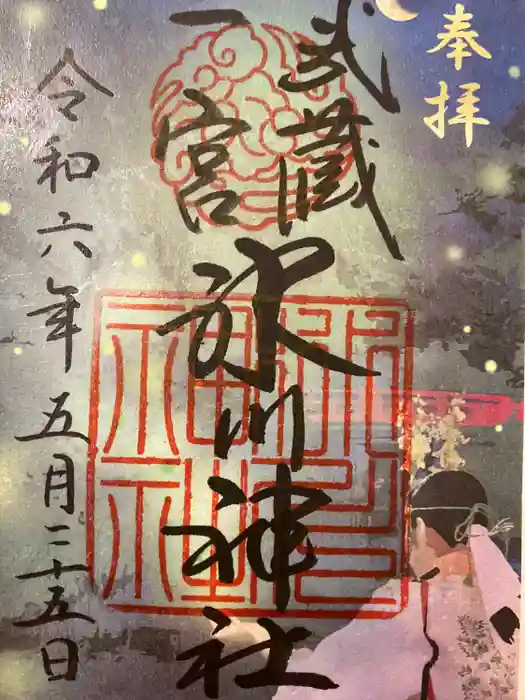 奉拝
武蔵
一宮
氷川神社
令和六年五月二十五日
氷川神社